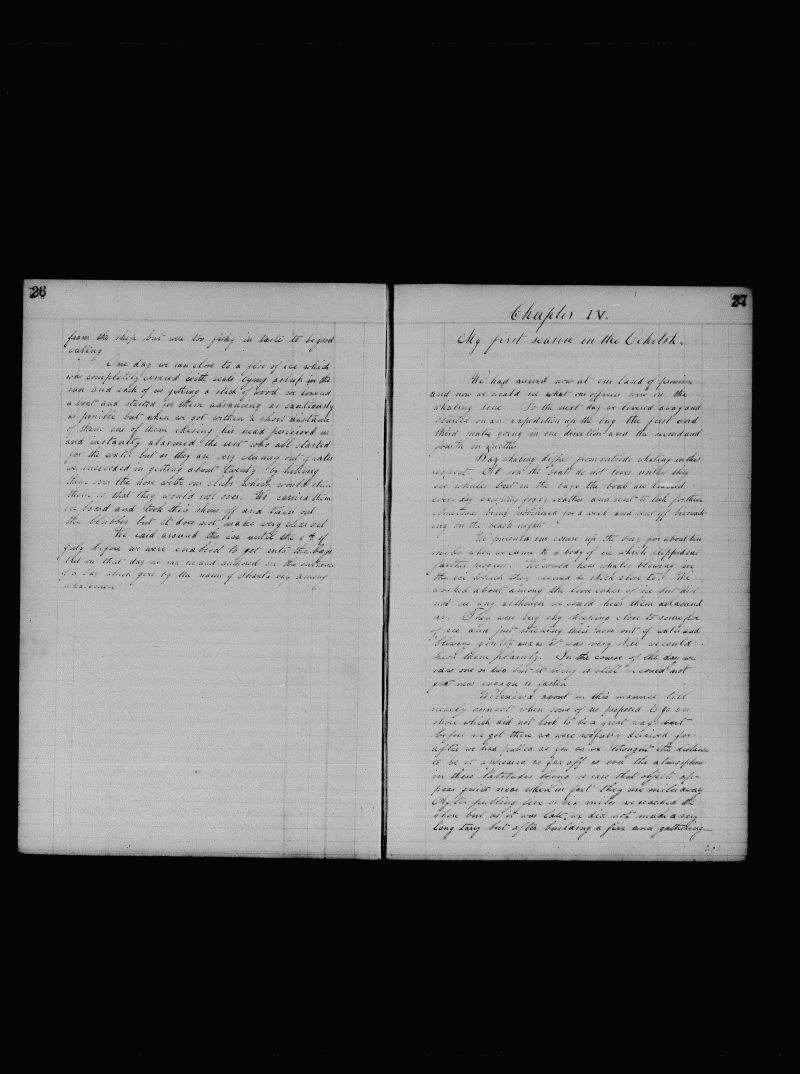 26
from the ship but were too fishy in taste to be good
eating
One day we ran close to a floe of ice which
was completely covered with seals lying asleep in the
sun and each of us getting a stick of wood we lowered
a boat and started for them advancing as cautiously
as possible but when we got within a short distance
of them one of them raising his head perceived us
and instantly alarmed the rest who all started
for the water but as they are very clumsy out of water
we succeeded in getting about twenty by hitting
them over the nose with our clubs which would stun
them so that they would not move. We carried them
on board and took their skins off and tried out
the blubber but it does not make very clear oil
We laid around the ice until the of
July before we were enabled to get into the bays
but on that day we ran in and anchored in the entrance
of a bay which goes by the name of Shantar bay among
whalemen
27
Chapter IV.
My first season in the Ochotsk.
We had arrived now at our land of promise
and now we would see what our officers were in the
whaling line. So the next day we lowered away and
started on an expedition up the bay the first and
third mates going in one direction and the second and
fourth in another
Bay whaling differs from outside whaling in this
respect. At sea the boats do not lower unless they
see whales but in the bays the boats are lowered
every day excepting foggy weather and sent to look for them
sometimes being provisioned for a week and sent off
on the beach nights
We pursued our course up the bay for about ten
miles when we came to a body of ice which stopped our
farther progress. We could hear whales blowing in
the ice which they seemed to stick close to. We
worked about among the loose cakes of ice but did
not see any although we could hear them all around
us. They were very shy keeping close to some floe
of ice and just sticking their nose out of water and
blowing gently and as it was very still we could
hear them plainly. In the course of the day we
saw one or two but it being so still we could not
get near enough to fasten
We cruised about in this manner till
nearly sunset when some of us proposed to go on
shore which did not look to be a great way but
before we got there we were woefully deceived for
after we had pulled as far as we thought the distance
to be it appeared as far off as ever the atmosphere
in these latitudes being so rare that objects ap-
pear quite near when in fact they are miles away
After pulling five or six miles we reached the
shore but as it was late we did not make a very
long tarry but after building a fire and gathering